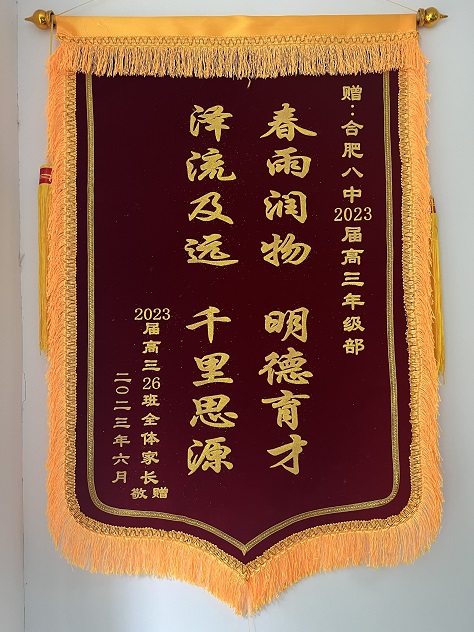 赠:合肥八中2023届高三年级部
春雨润物 明德育才
泽流及远 千里思源
2023届高三26班全体家长
敬赠
二〇二三年六月